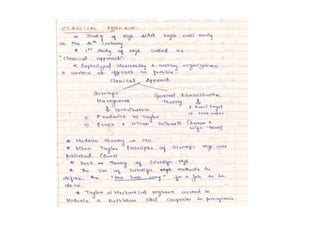 CLASSICAL APPROACH:-
* Study of Mgt. didnt begin until early
in the 20th century
* 1st study of Mgt. called as
"Classical approach"
* Emphasized Rationality & making organizations
& workers as efficient as possible.
Classical Approach
Scientific General Administrative
Management Theory
↓ Contributors ↓
1) Frederick W. Taylor 1. Henri Fayol
2) Frank & Lillian Gilbreth (husband & 2. Max Weber
wife team)
* Modern Theory
* When Taylor Principles of Scientific Mgt. was
published
* Book Theory of Scientific Mgt.
* The Use of Scientific methods to
define the "One best way" for a job to be
done.
* Taylor a Mechanical engineer worked in
Midvale & Bethlehem Steel Companies in